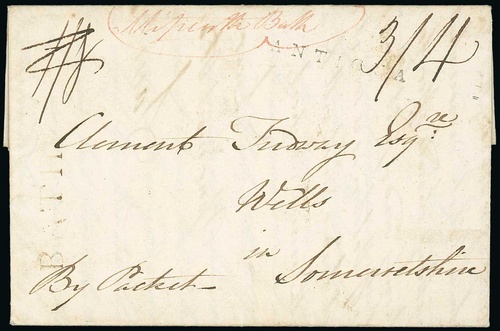 ANTIGUA
3/4
Clement Tudway Esqre
Wells
in
Somersetshire
By Packet
BATH